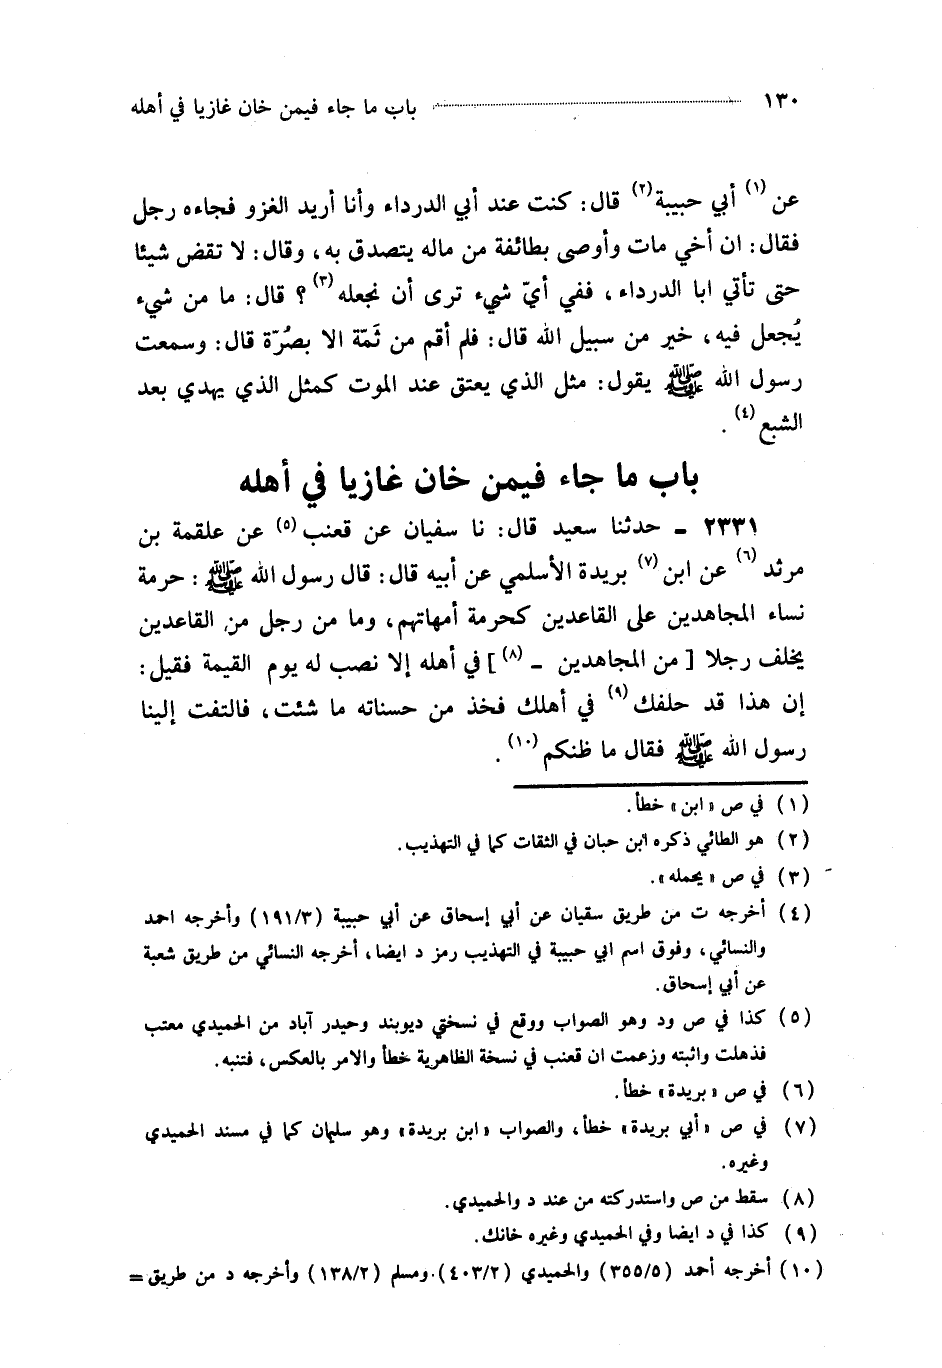 ١٣٠ باب ما جاء فيمن خان غازيا في أهله
عن (١) أبي حبيبة (٢) قال : كنت عند أبي الدرداء وأنا أريد الغزو فجاءه رجل
فقال : ان أخي مات وأوصى بطائفة من ماله يتصدق به ، وقال : لا تقض شيئا
حتى تأتي ابا الدرداء ، ففي أيّ شيء ترى أن نجعله (٣) ؟ قال : ما من شيء
يُجعل فيه ، خير من سبيل الله قال : فلم أقم من ثَمّة الا بصُرّة قال : وسمعت
رسول الله ﷺ يقول : مثل الذي يعتق عند الموت كمثل الذي يهدي بعد
الشبع (٤) .
باب ما جاء فيمن خان غازيا في أهله
٢٣٣١ ـ حدثنا سعيد قال : نا سفيان عن قعنب (٥) عن علقمة بن
مرثد (٦) عن ابن (٧) بريدة الأسلمي عن أبيه قال : قال رسول الله ﷺ : حرمة
نساء المجاهدين على القاعدين كحرمة أمهاتهم ، وما من رجل من القاعدين
يخلف رجلا [ من المجاهدين ـ (٨) ] في أهله إلا نصب له يوم القيمة فقيل :
إن هذا قد حلفك (٩) في أهلك فخذ من حسناته ما شئت ، فالتفت إلينا
رسول الله ﷺ فقال ما ظنكم (١٠) .
(١) في ص « ابن » خطأ .
(٢) هو الطائي ذكره ابن حبان في الثقات كما في التهذيب .
(٣) في ص « يحمله » .
(٤) أخرجه ت من طريق سقيان عن أبي إسحاق عن أبي حبيبة (١٩١/٣) وأخرجه احمد
والنسائي ، وفوق اسم ابي حبيبة في التهذيب رمز د ايضا ، أخرجه النسائي من طريق شعبة
عن أبي إسحاق .
(٥) كذا في ص ود وهو الصواب ووقع في نسختي ديوبند وحيدر آباد من الحميدي معتب
فذهلت واثبته وزعمت ان قعنب في نسخة الظاهرية خطأ والامر بالعكس ، فتنبه .
(٦) في ص « بريدة » خطأ .
(٧) في ص « أبي بريدة » خطأ ، والصواب « ابن بريدة » وهو سليمان كما في مسند الحميدي
وغيره .
(٨) سقط من ص واستدركته من عند د والحميدي .
(٩) كذا في د ايضا وفي الحميدي وغيره خانك .
(١٠) أخرجه أحمد (٣٥٥/٥) والحميدي (٤٠٣/٢) . ومسلم (١٣٨/٢) وأخرجه د من طريق =